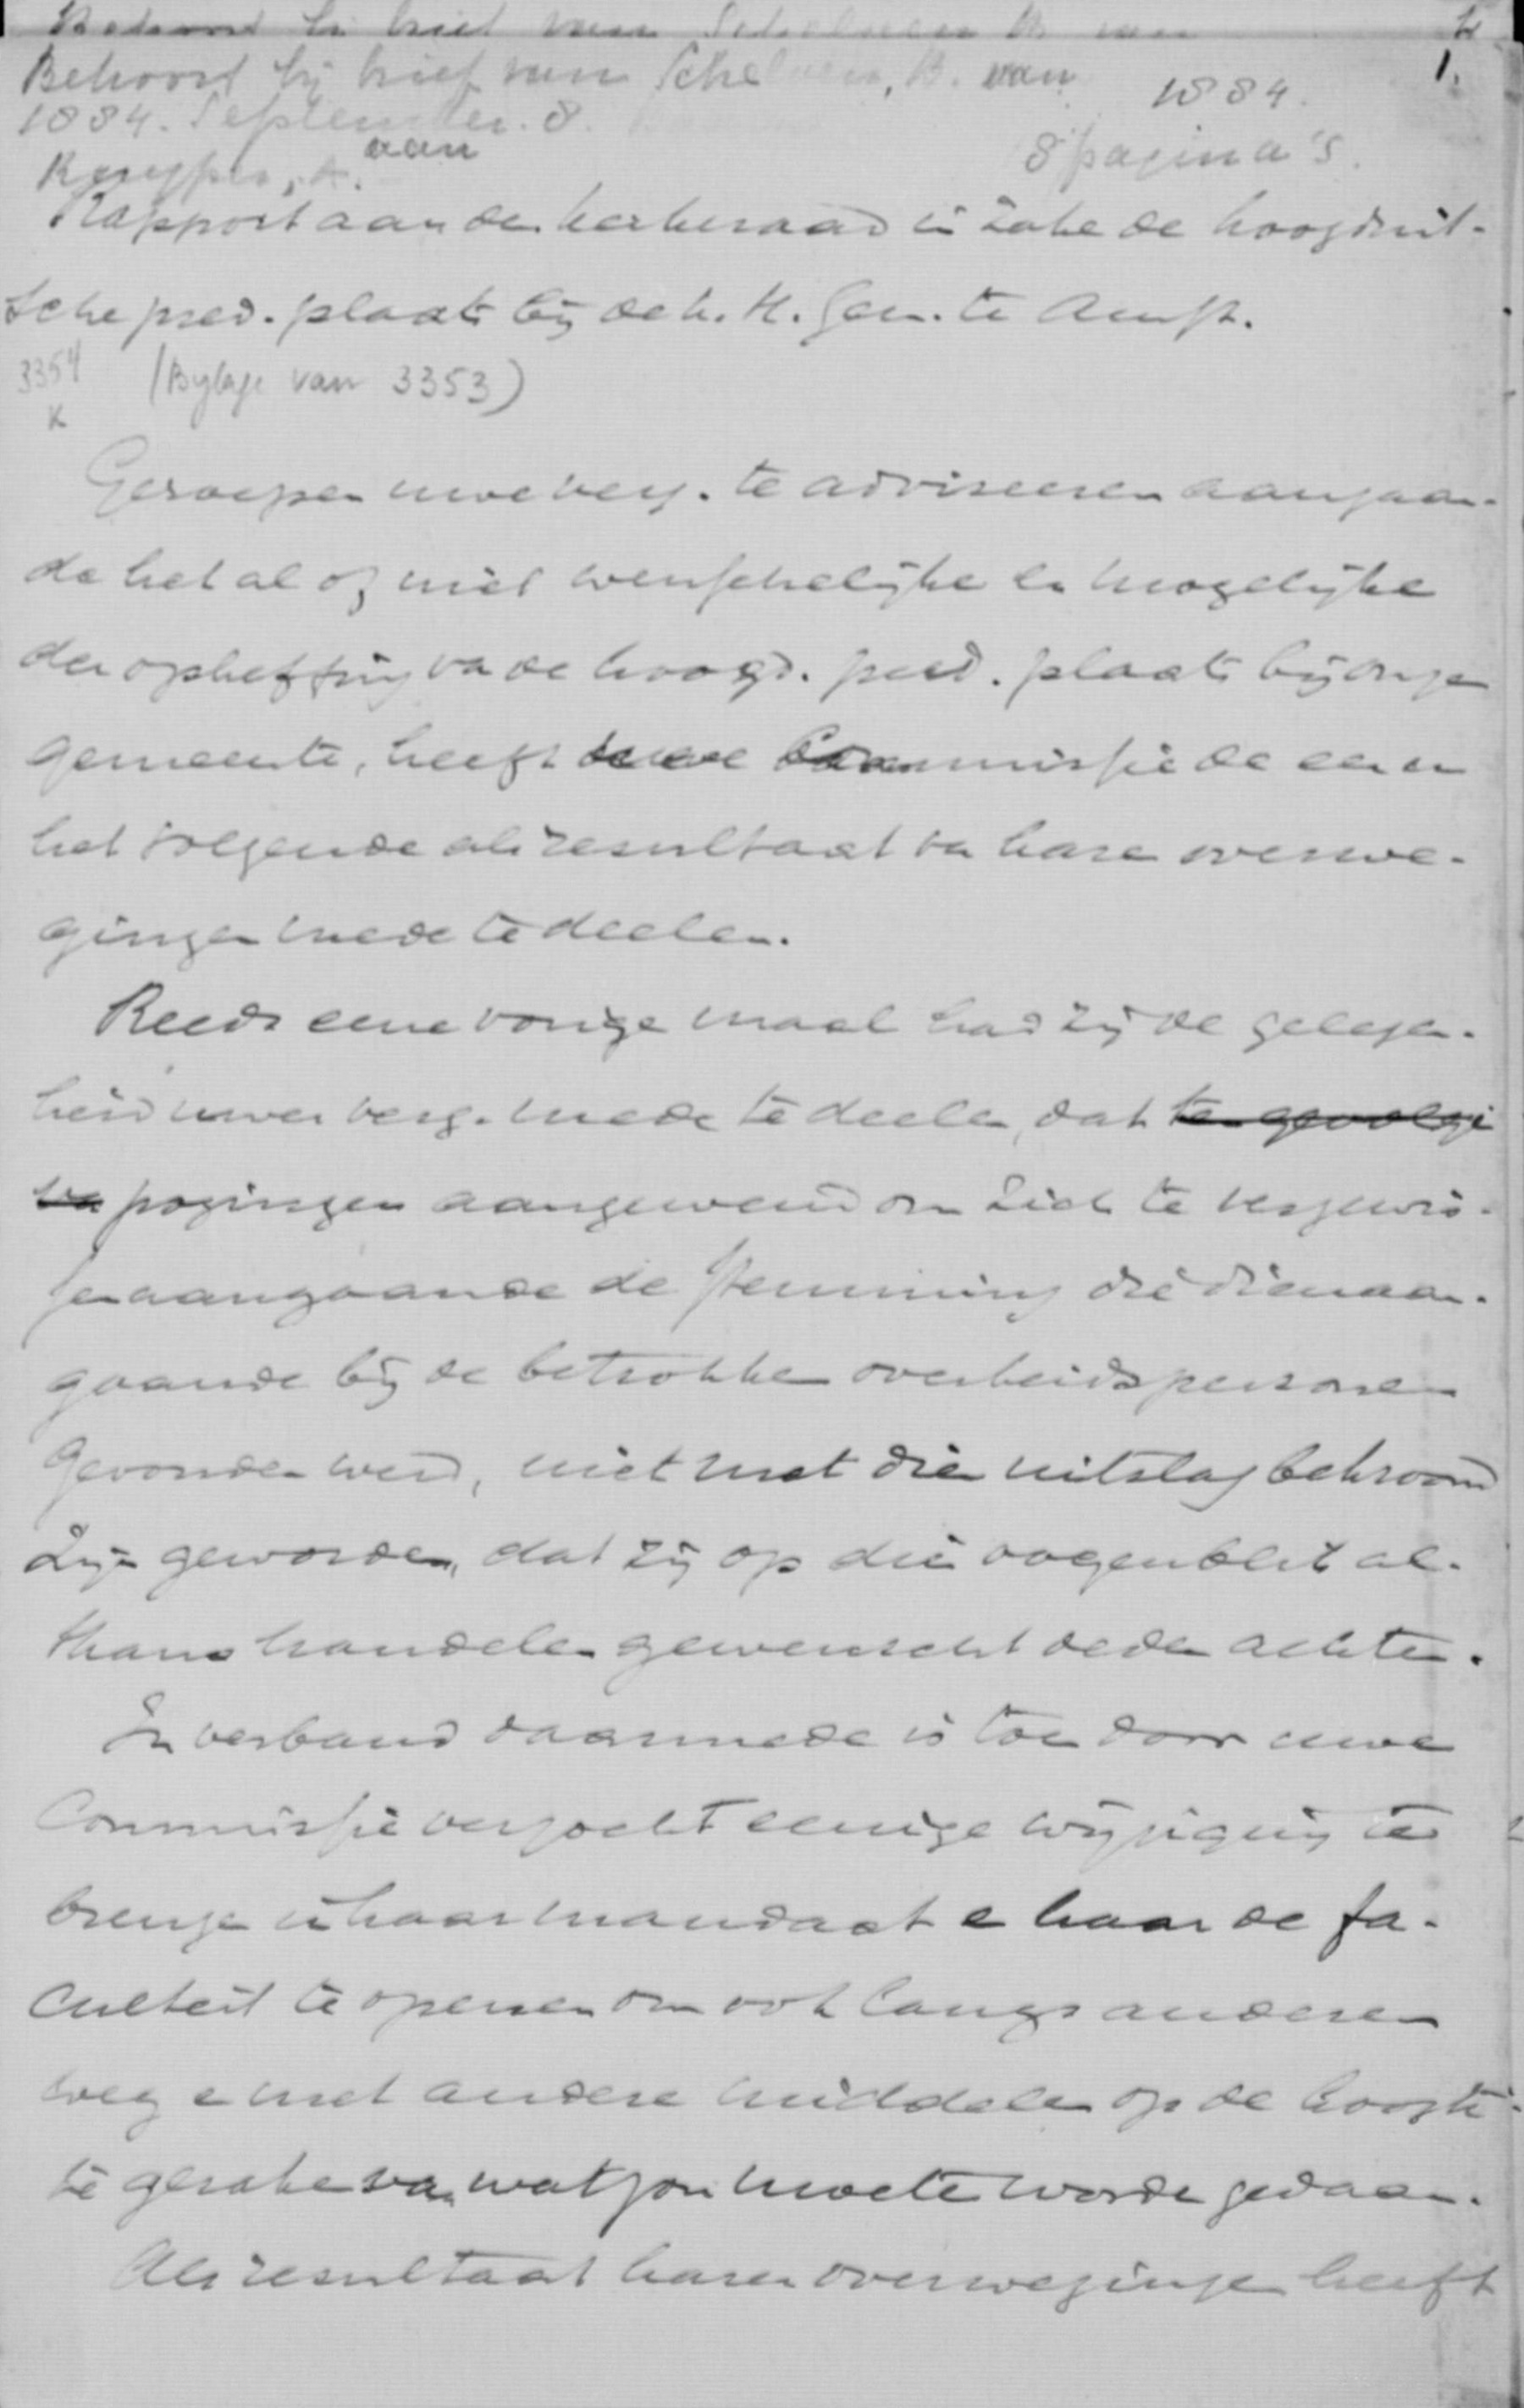 Behoort bij brief van Schelven, B. van
1.
1884. September. 8.
1884.
aan
8 pagina's.
Kuyper, A.
Rapport aan den kerkeraad in zake de hoogduit-
sche pred. plaats bij de N. H. Gem. te Amst.
3354 (Bylage van 3353)
K
Geroepen uwe verg. te adviseeren aangaan-
de het al of niet wenschelijke en mogelijke
der opheffing va de hoogd. pred. plaats bij onze
gemeente, heeft uwe Commissie de eer u
het volgende als resultaat va hare overwe-
gingen mede te deelen.
Reeds eene vorige maal had zij de gelegen-
heid uwer verg. mede te deelen, dat ten gevolge
va pogingen aangewend om zich te vergewis-
sen aangaande de stemming die dienaan-
gaande bij de betrokken overheidspersonen
gevonden werd, niet met dien uitslag bekroond
zijn geworden, dat zij op die oogenblik al-
thans handelen gewenscht deden achten.
In verband daarmede is toen door uwe
Commissie verzocht eenige wijziging te
brengen in haar mandaat e haar de fa-
culteit te openen om ook langs anderen
weg e met andere middelen op de hoogte
te geraken van wat zou moeten worden gedaan.
Als resultaat harer overwegingen heeft